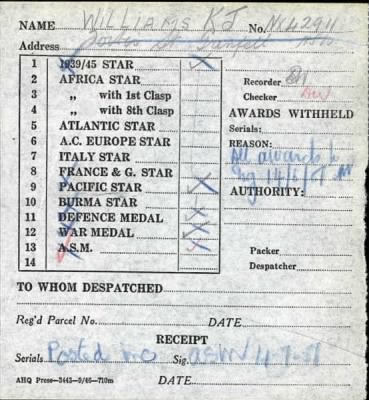 NAME WILLIAMS K J No. N142911
Address
1 1939/45 STAR
2 AFRICA STAR
3 „ with 1st Clasp
4 „ with 8th Clasp
5 ATLANTIC STAR
6 A.C. EUROPE STAR
7 ITALY STAR
8 FRANCE & G. STAR
9 PACIFIC STAR
10 BURMA STAR
11 DEFENCE MEDAL
12 WAR MEDAL
13 A.S.M.
14
Recorder
Checker
AWARDS WITHHELD
Serials:
REASON:
All awards to
AUTHORITY:
Packer
Despatcher
TO WHOM DESPATCHED
Reg'd Parcel No. DATE
RECEIPT
Serials Posted Sig.
AHQ Press—3443—9/46—710m DATE